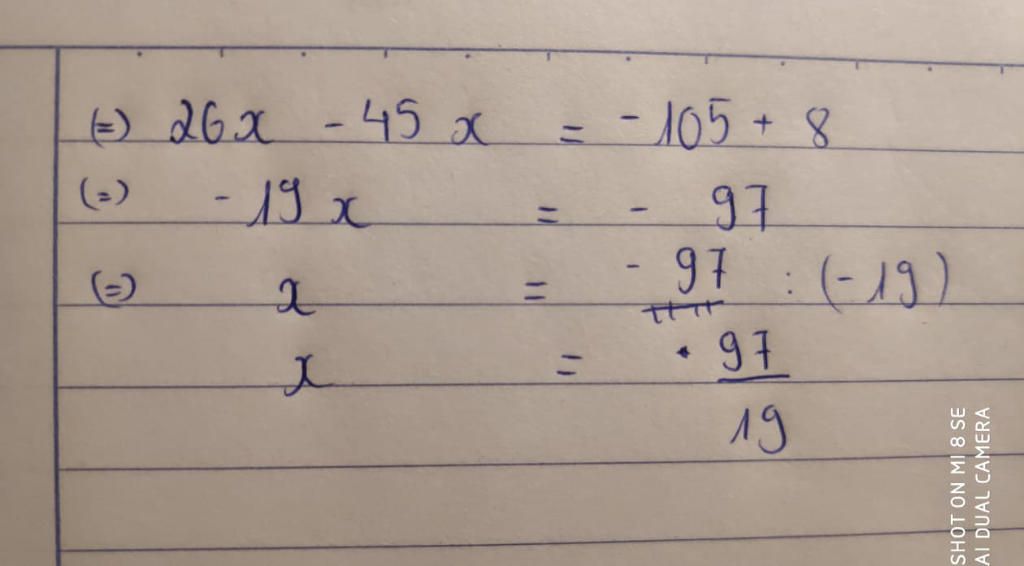 (=) 26x - 45x = -105 + 8
(=) -19x = - 97
(=) x = -97 : (-19)
x = 97
19
SHOT ON MI 8 SE
AI DUAL CAMERA